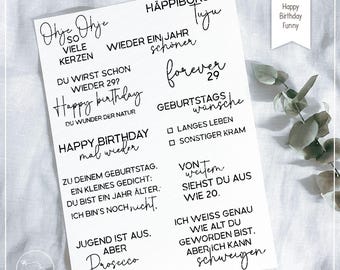 Ohje Ohje
SO
VIELE
KERZEN
HÄPPIBÖ
Tuju
WIEDER EIN JAHR
schöner
DU WIRST SCHON
WIEDER 29?
forever
29
Happy birthday
DU WUNDER DER NATUR
GEBURTSTAGS
wünsche
LANGES LEBEN
SONSTIGER KRAM
HAPPY BIRTHDAY
mal wieder
ZU DEINEM GEBURTSTAG,
EIN KLEINES GEDICHT:
DU BIST EIN JAHR ÄLTER,
ICH BIN'S NOCH nicht.
VON
weitem
SIEHST DU AUS
WIE 20.
JUGEND IST AUS,
ABER
Prosecco
ICH WEISS GENAU
WIE ALT DU
GEWORDEN BIST,
ABER ICH KANN
schweigen
Happy
Birthday
Funny